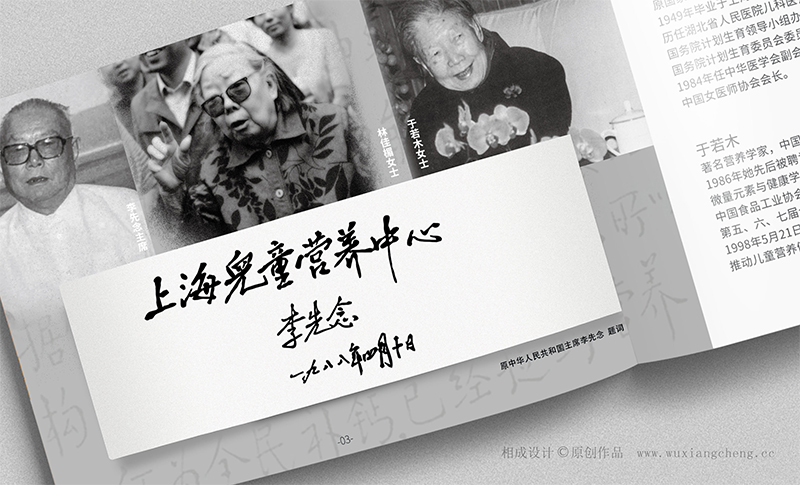 李先念主席
林佳楣女士
于若木女士
上海兒童营养中心
李先念
一九八八年四月十日
原中华人民共和国主席李先念 题词
-03-
1949年毕业于上
历任湖北省人民医院儿科医
国务院计划生育领导小组办
国务院计划生育委员会委员
1984年任中华医学会副会
中国女医师协会会长。
于若木
著名营养学家，中国
1986年她先后被聘
微量元素与健康学
中国食品工业协会
第五、六、七届
1998年5月21日
推动儿童营养
据
构
全民补钙已经
营养
相成设计©原创作品 www.wuxiangcheng.cc